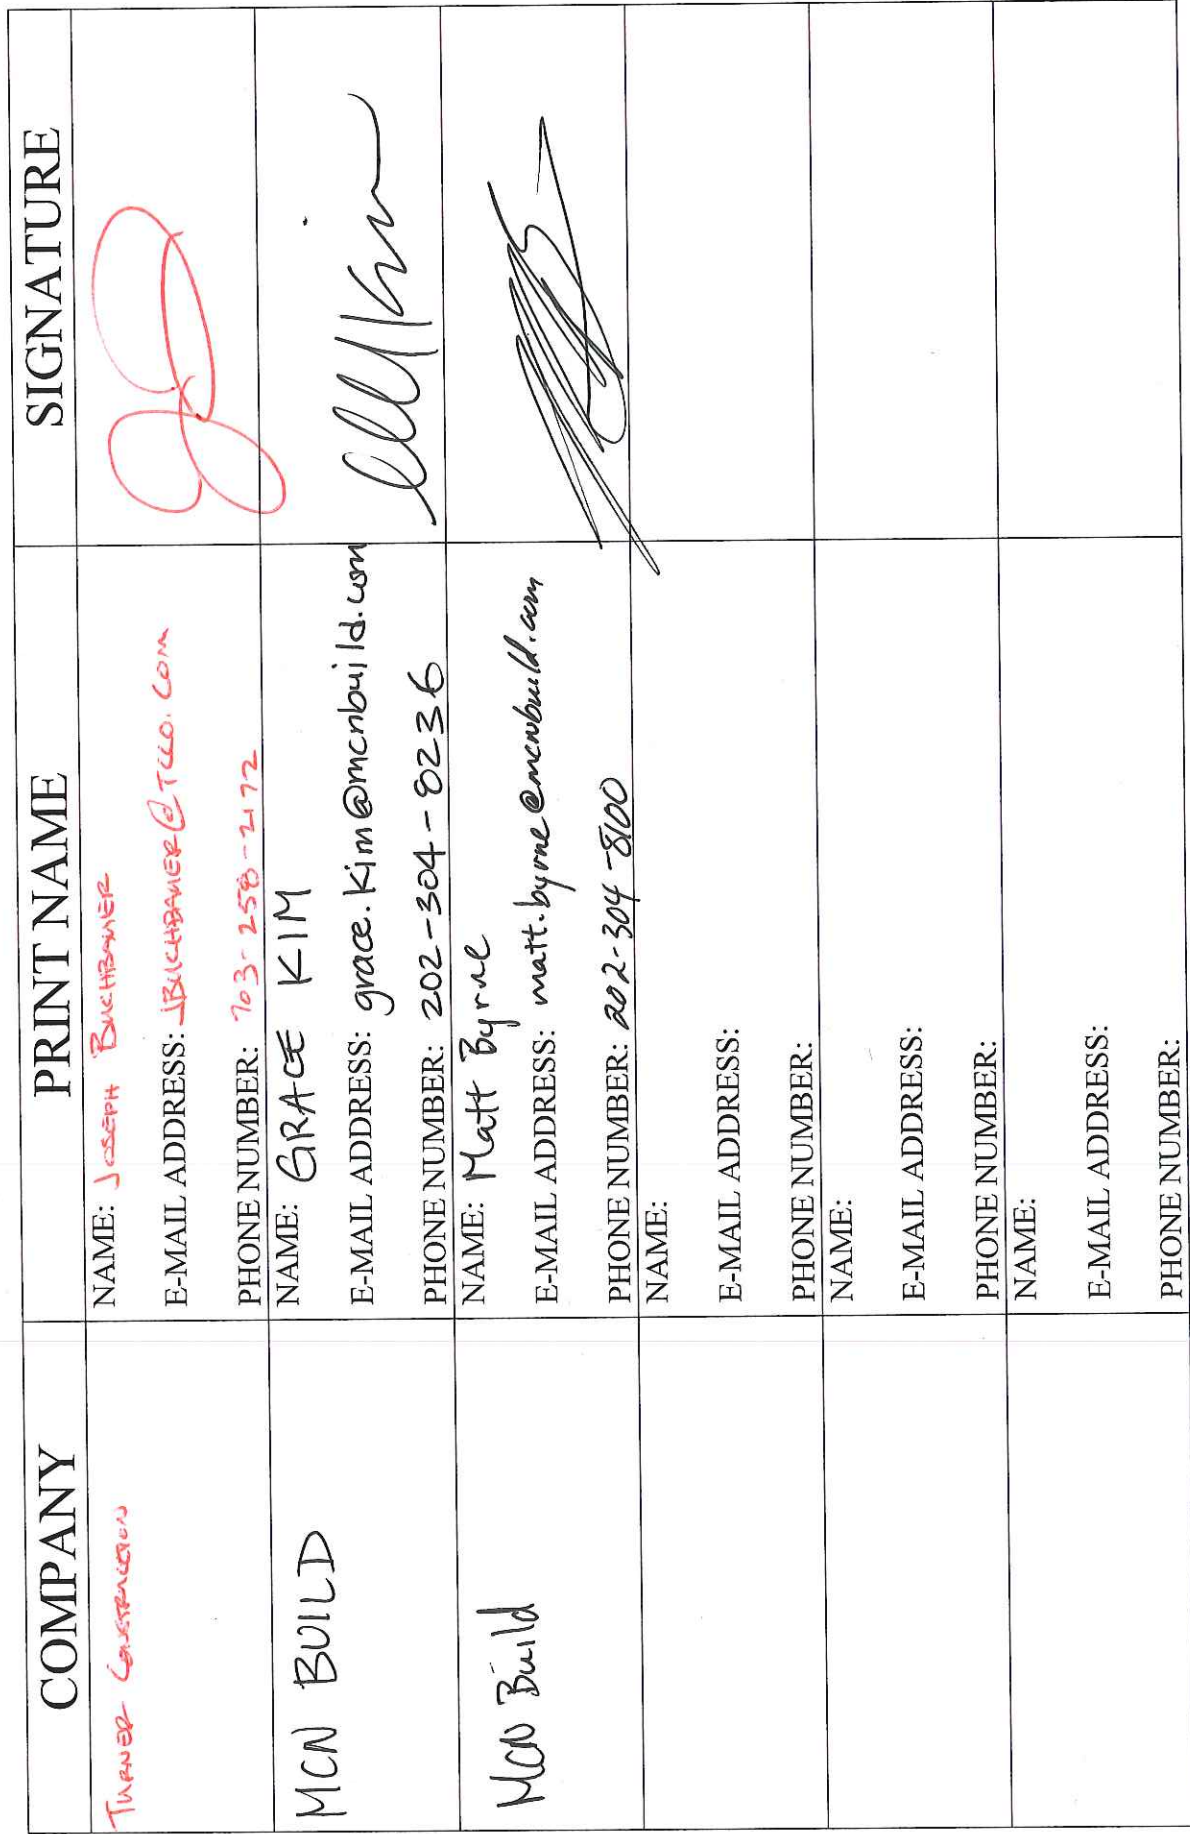 COMPANY PRINT NAME SIGNATURE
TURNER CONSTRUCTION
NAME: JOSEPH BUCHBAUER
E-MAIL ADDRESS: JBUCHBAUER@TCCO.COM
PHONE NUMBER: 703-258-2172
MCN BUILD
NAME: GRACE KIM
E-MAIL ADDRESS: grace.kim@mcnbuild.com
PHONE NUMBER: 202-304-8236
MCN Build
NAME: Matt Byrne
E-MAIL ADDRESS: matt.byrne@mcnbuild.com
PHONE NUMBER: 202-304-8100
NAME:
E-MAIL ADDRESS:
PHONE NUMBER:
NAME:
E-MAIL ADDRESS:
PHONE NUMBER:
NAME:
E-MAIL ADDRESS:
PHONE NUMBER: